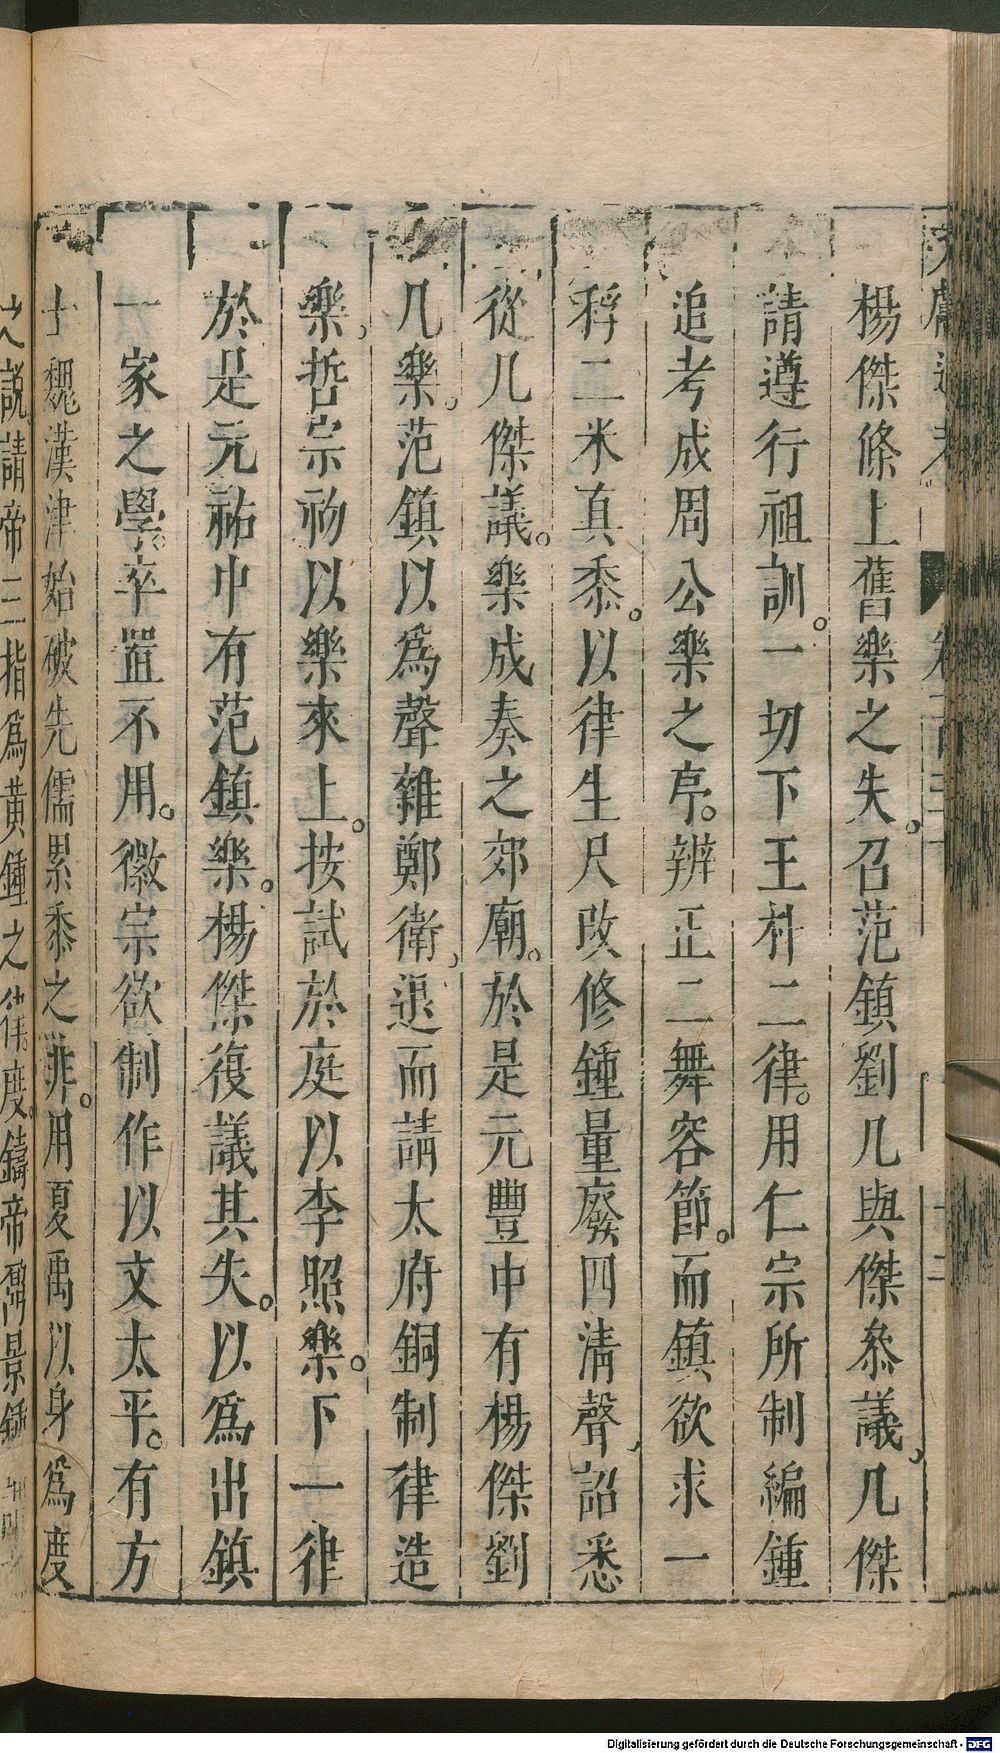 楊傑條上舊樂之失。召范鎮劉几與傑叅議几傑
請遵行祖訓。一切下王朴二律。用仁宗所制編鍾
追考成周公樂之序。辨正二舞容節。而鎮欲求一
稃二米真黍。以律生尺改修鍾量廢四淸聲詔悉
從几傑議。樂成奏之郊廟。於是元豐中有楊傑劉
几樂。范鎮以爲聲雜鄭衛退而請太府銅制律造
樂哲宗初以樂來上。按試於庭以李照樂。下一律
於是元祐中有范鎮樂。楊傑復議其失。以爲出鎮
一家之學。卒置不用。徽宗欲制作以文太平。有方
士魏漢津始破先儒累黍之非。用夏禹以身爲度
之說請帝三指爲黃鍾之律度。鑄帝鼐景鍾
Digitalisierung gefördert durch die Deutsche Forschungsgemeinschaft - DFG